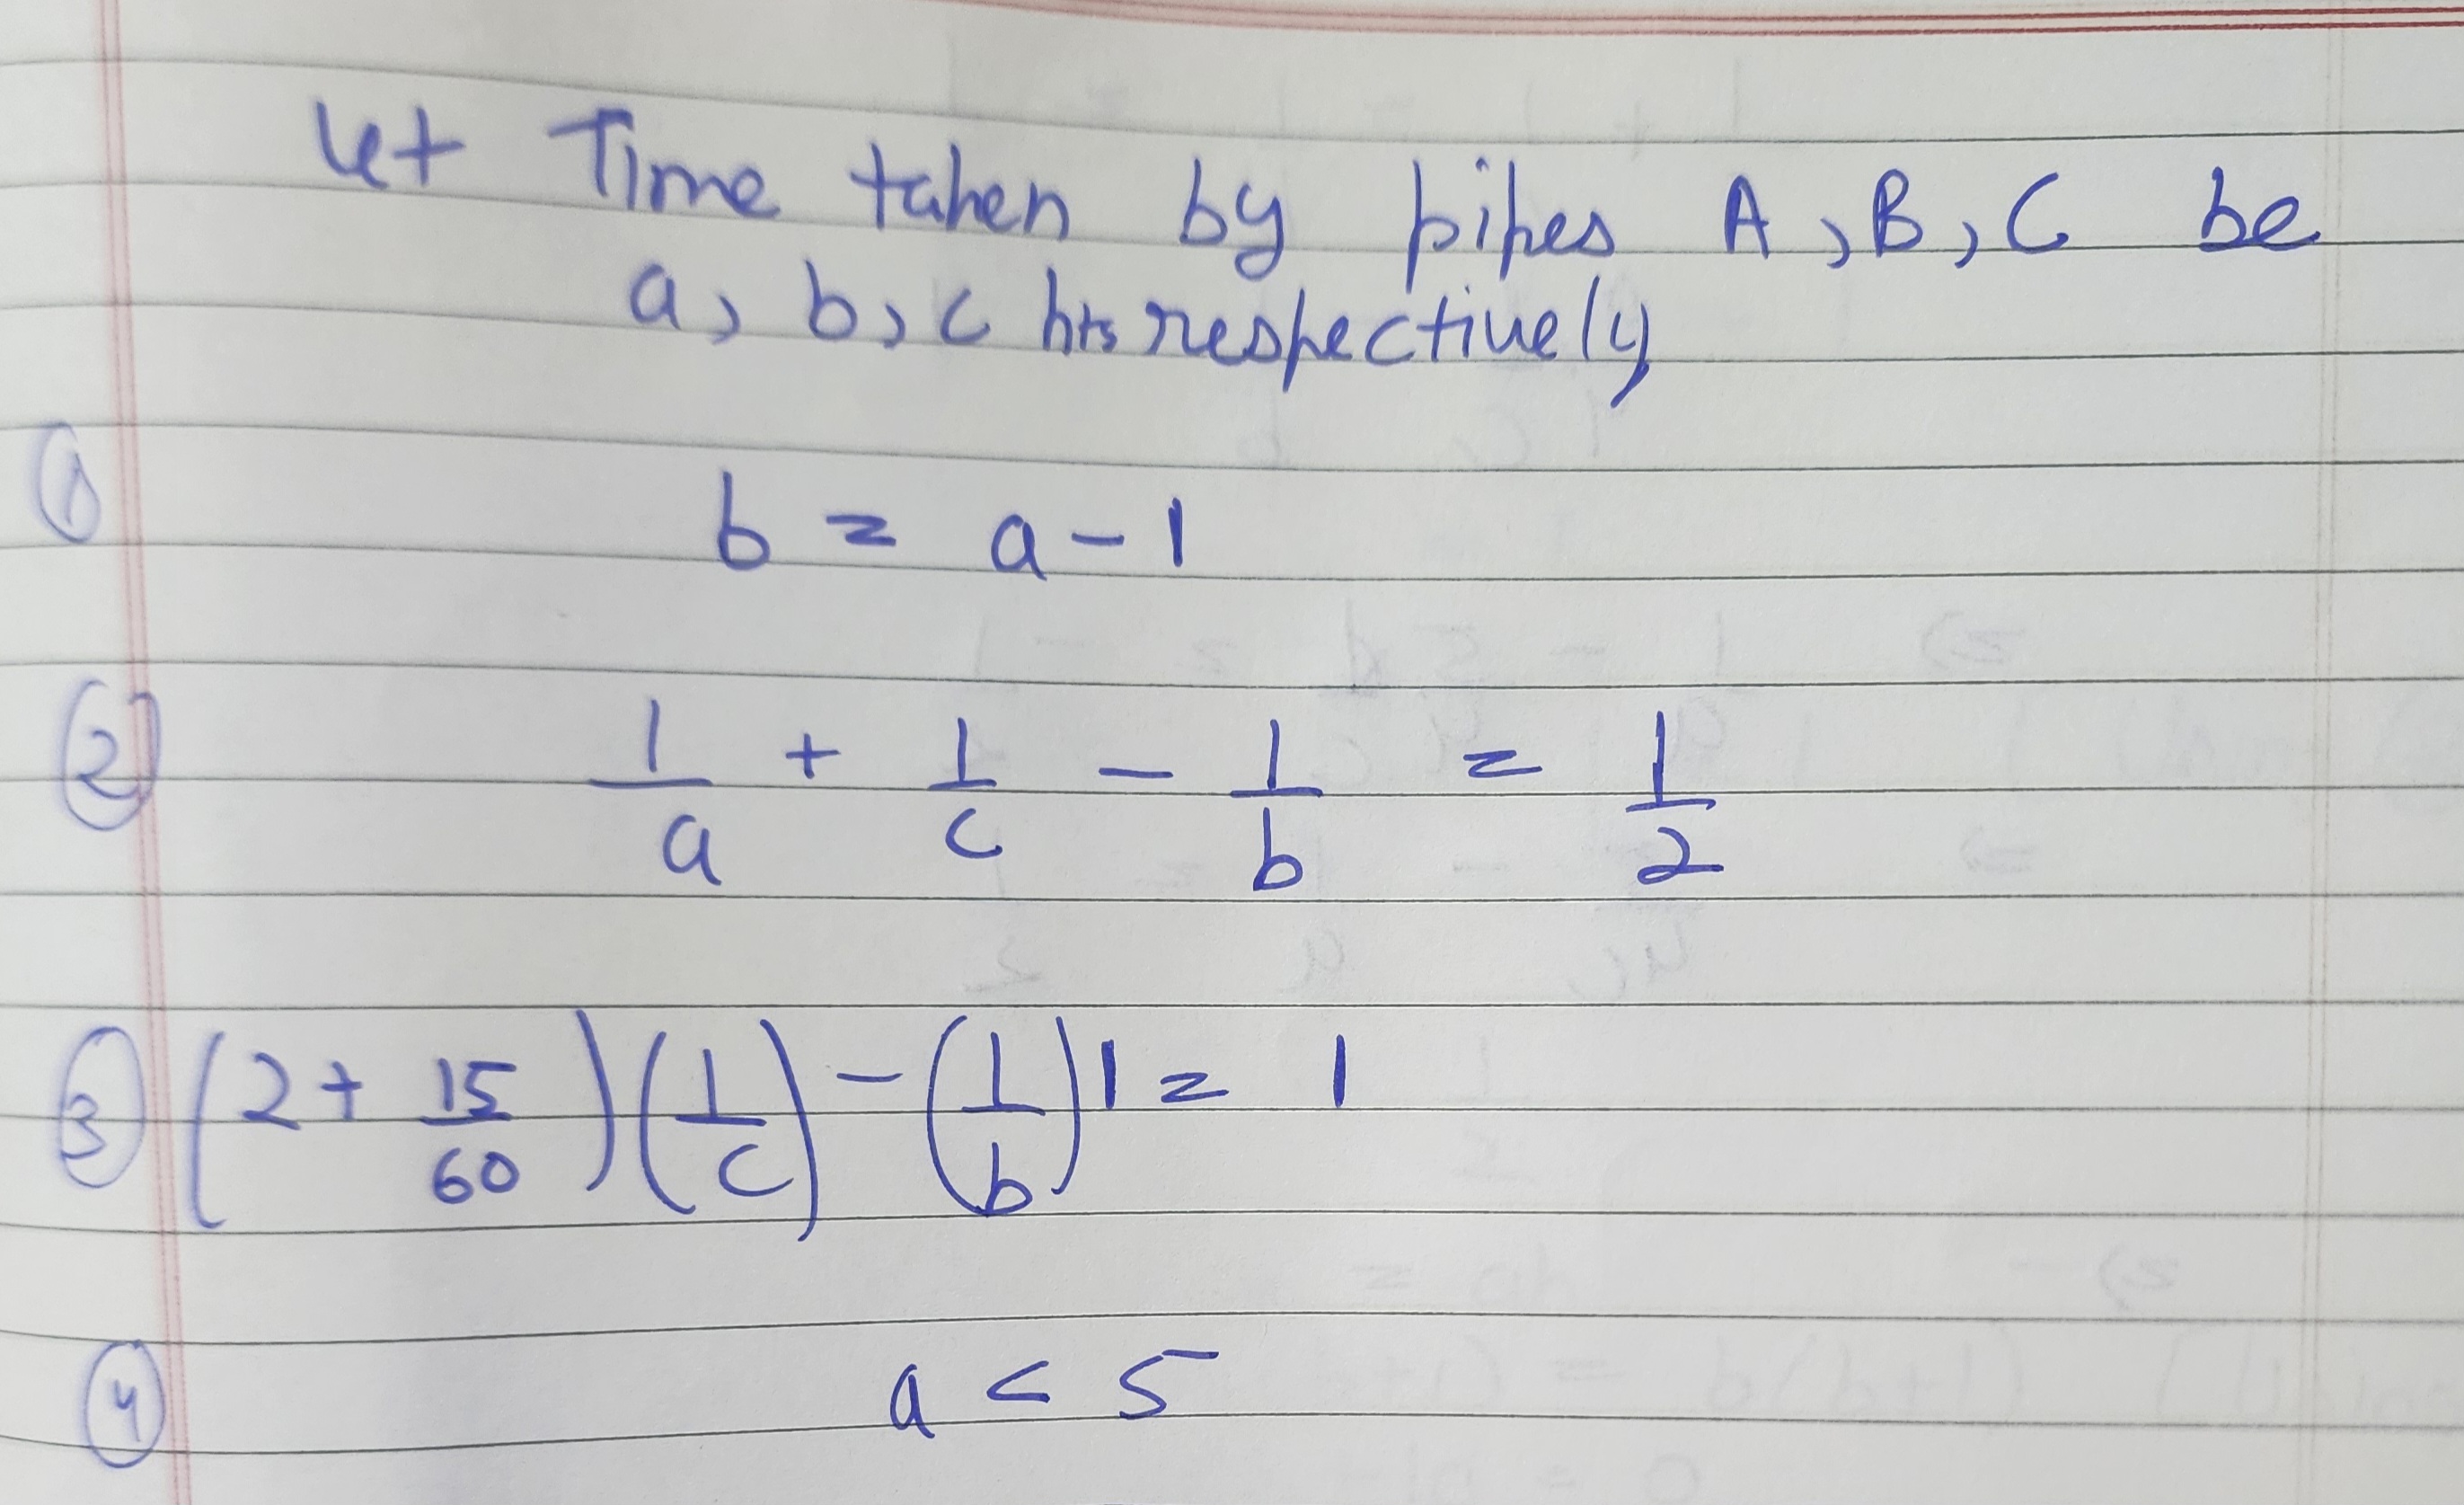 Let Time taken by pipes A, B, C be
a, b, c hrs respectively
① b = a - 1
② 1/a + 1/c - 1/b = 1/2
③ (2 + 15/60)(1/c) - (1/b)1 = 1
④ a < 5